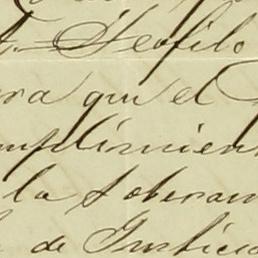 Teofilo
ra que el
mplimien
la soberan
de Justicia